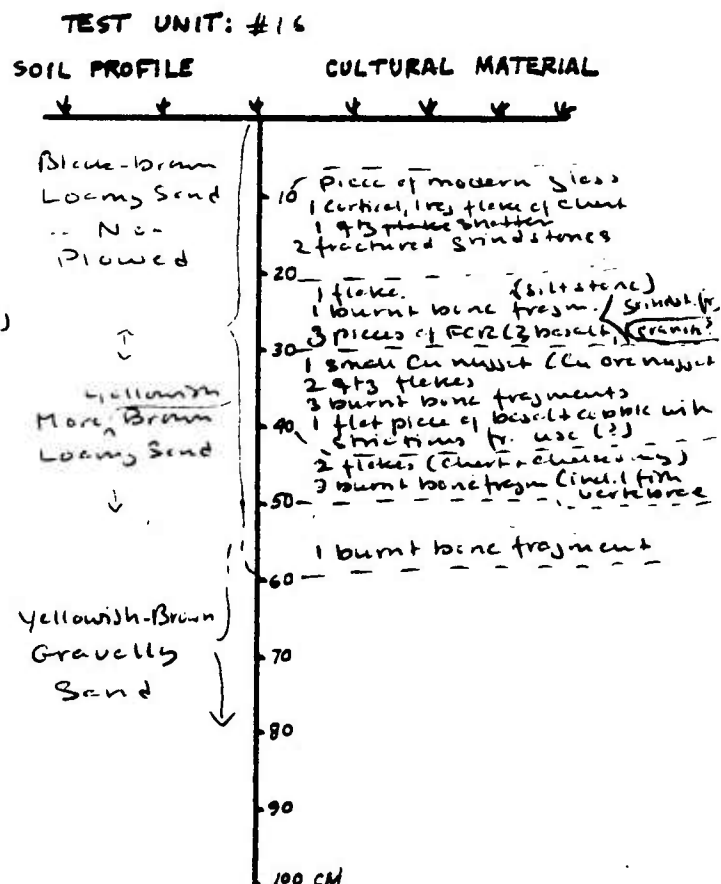 TEST UNIT: #16
SOIL PROFILE
CULTURAL MATERIAL
Black-brown
Loamy Sand
-- Non-
Plowed
More Yellowish Brown
Loamy Sand
Yellowish-Brown
Gravelly
Sand
10
20
30
40
50
60
70
80
90
100 CM
piece of modern glass
1 cortical, 1 reg flake of chert
1 qtz flake shatter
2 fractured grindstones
1 flake. (siltstone)
1 burnt bone fragm. / grindst. fr.
3 pieces of FCR (2 basalt,
1 small Cu nugget (Cu ore nugget
2 qtz flakes
3 burnt bone fragments
1 flat piece of basalt cobble with
striations fr. use (?)
2 flakes (chert + chalcedony)
3 burnt bone fragm (incl. 1 fish
vertebrae
1 burnt bone fragment